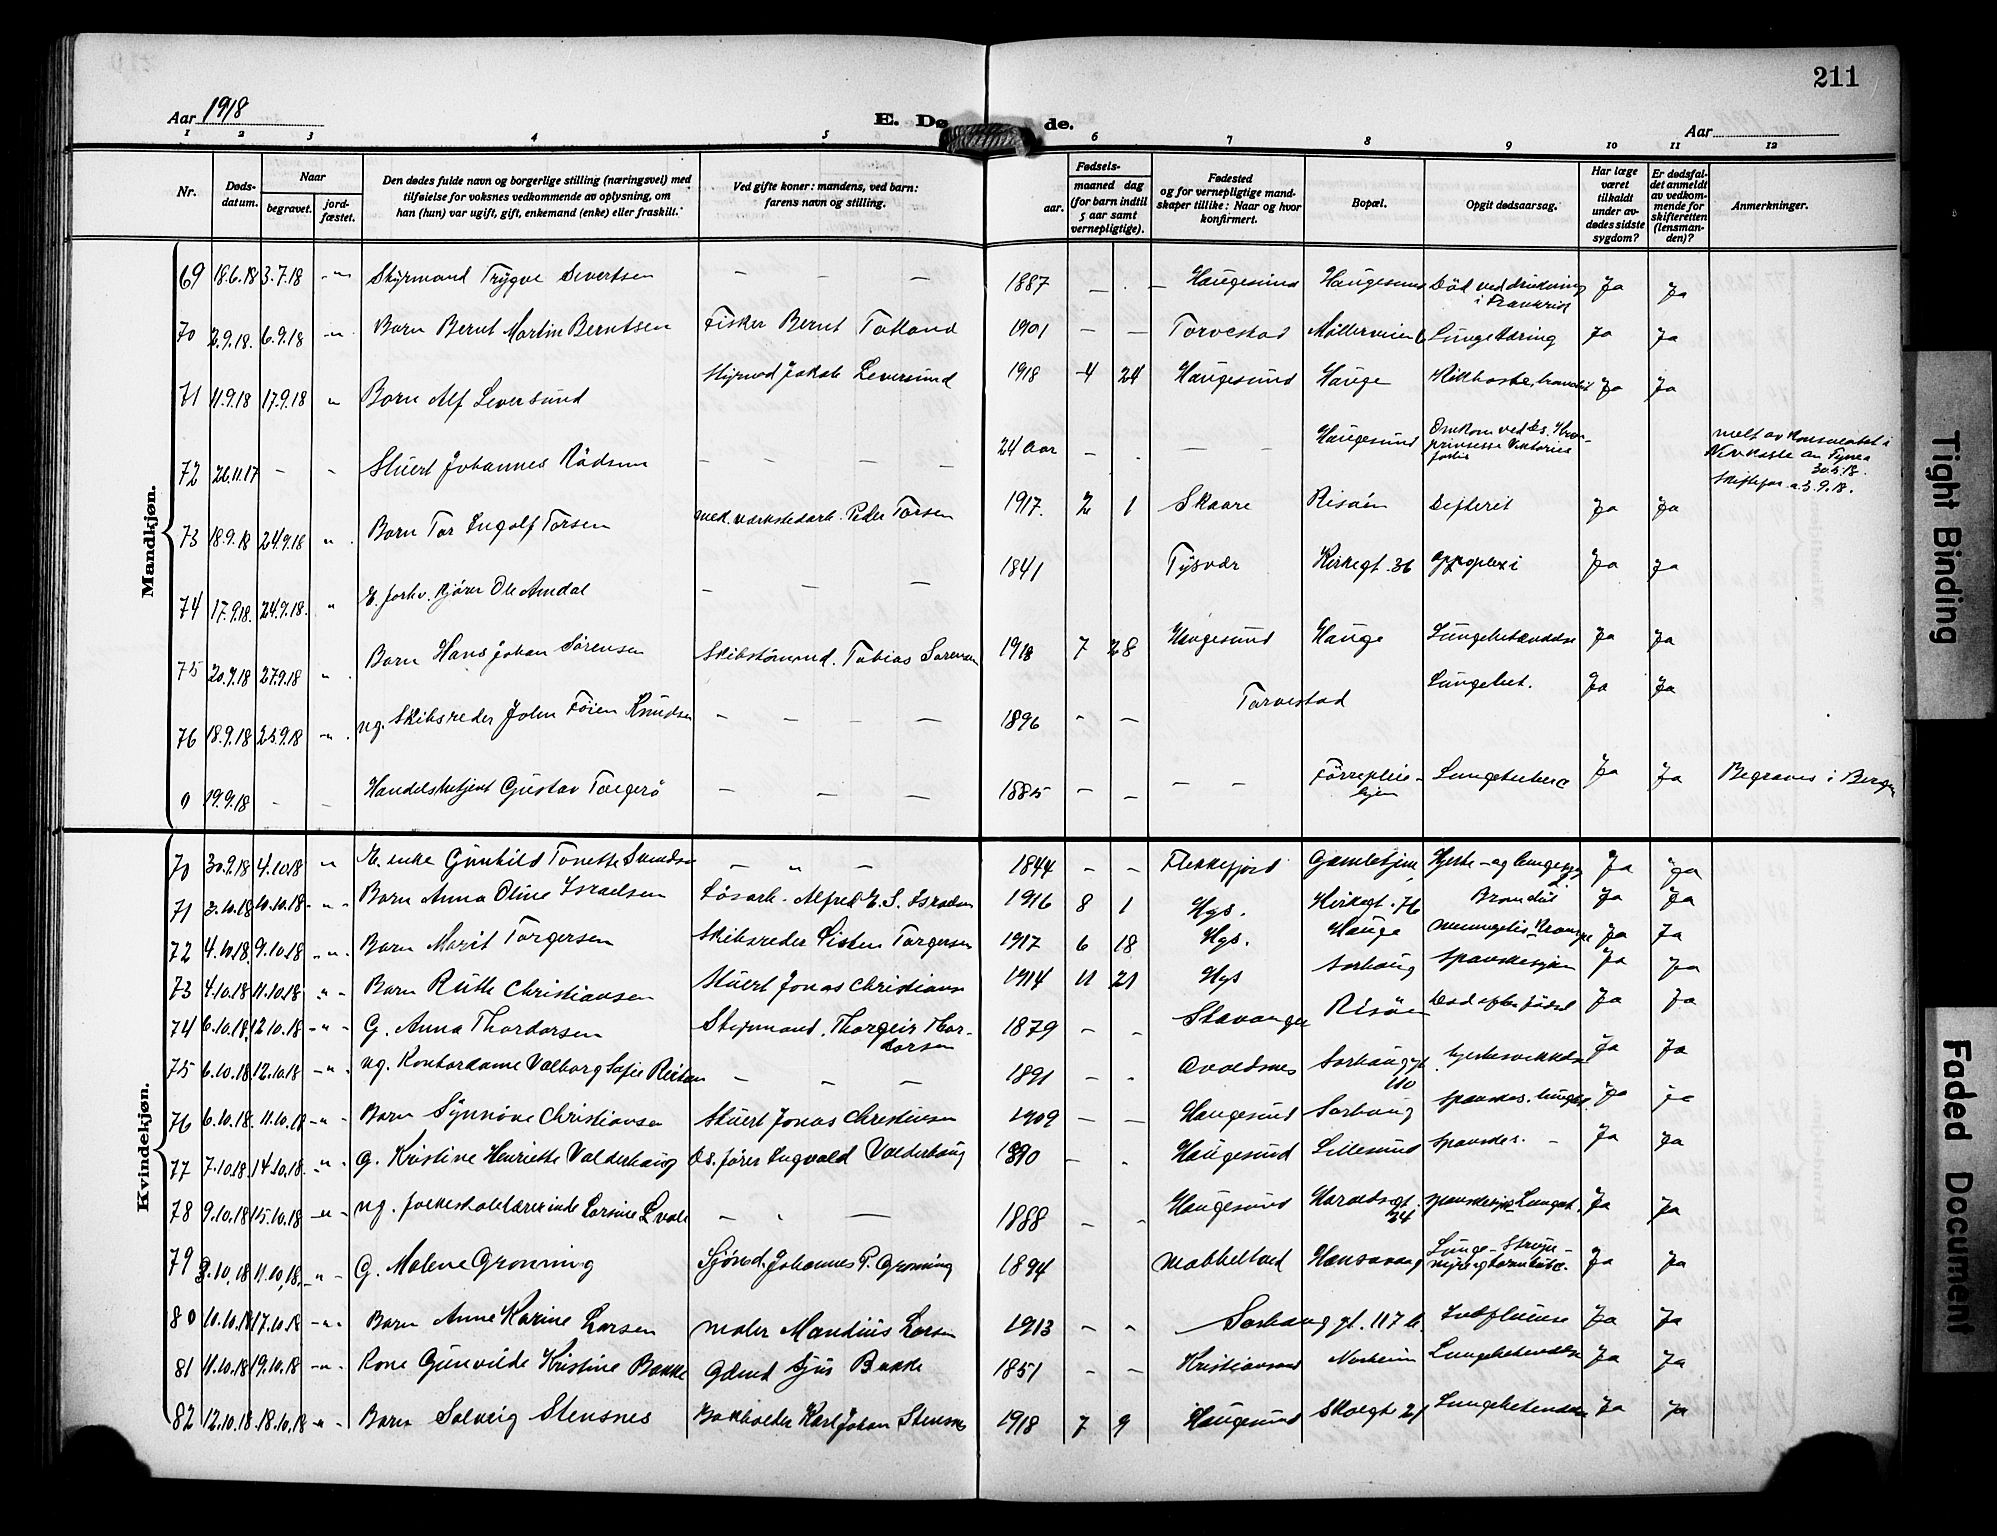 211
Aar 1918
E. Dø de.
Aar
1 2 3 4 5 6 7 8 9 10 11 12
Nr.
Døds-
datum.
Naar
begravet.
jord-
fæstet.
Den dødes fulde navn og borgerlige stilling (næringsvei) med
tilføielse for voksnes vedkommende av oplysning, om
han (hun) var ugift, gift, enkemand (enke) eller fraskilt.
Ved gifte koner: mandens, ved barn:
farens navn og stilling.
Fødsels-
aar.
maaned dag
(for barn indtil
5 aar samt
vernepligtige).
Fødested
og for vernepligtige mand-
skaper tillike: Naar og hvor
konfirmert.
Bopæl.
Opgit dødsaarsag.
Har læge
været
tilkaldt
under av-
dødes sidste
sygdom?
Er dødsfal-
det anmeldt
av vedkom-
mende for
skifteretten
(lensman-
den)?
Anmerkninger.
Mandkjøn.
69 18.6.18 3.7.18 -"- Styrmand Trygve Sivertsen — — — 1887 — . — Haugesund Haugesund Død ved drukning Ja Ja
i Frankrik
70 2.9.18. 6.9.18 -"- Barn Bernt Martin Berntsen Fisker Bernt Tatland 1901 — — Torvestad Møllerveien 6 Lungetæring Ja Ja
71 11.9.18 17.9.18 " Barn Alf Leversund Styrmd Jakob Leversund 1918 4 24 Haugesund Hauge Kikhoste, Ja Ja
72 26.11.17 - " Stuert Johannes Rådsun — — — — 24 Aar - . — — Haugesund Omkom ved ds. Kron-
prinsesse Viktorias
forlis
melt av Konsulatet i
Newkastle on Tyne
30.5.18.
Skiftefor. 23.9.18.
73 18.9.18 24.9.18 " Barn Tor Ingolf Torsen mek. værkstedarb. Peder Torsen 1917. 2 1 Skaare Risøen Difterit Ja Ja
74 17.9.18. 24.9.18. " E. forhv. kjører Ole Amdal — — — 1841 Tysvær Kirkegt. 36 Appoplexi Ja Ja
75 20.9.18 27.9.18 " Barn Hans Johan Sørensen Skibstømmd. Tobias Sørensen 1918 7 28 Haugesund Hauge Lungebetændelse Ja Ja
76 18.9.18 25.9.18 -" ug. Skibsreder John Føien Knudsen — — — — 1896 - — Torvestad Lungebet. Ja Ja
0 19.9.18 - - Handelsbetjent Gustav Torgerø — — — 1885 - - — — Førrepleie-
hjem Lungetuberc Ja Ja Begraves i Bergen
Kvindekjøn.
70 30.9.18 4.10.18 " E. enke Gunhild Tonette Svendsen — " — 1844 - - Flekkefjord Gamlehjem Hjerte- og lungesyg Ja Ja
71 3.10.18 10.10.18 -"- Barn Anna Oline Israelsen Løsarb. Alfred E. S. Israelsen 1916 8 1 Hgs. Kirkegt. 76 Brandsår Ja Ja
72 4.10.18. 9.10.18 -"- Barn Marit Torgersen Skibsreder Sisten Torgersen 1917 6 18 Hgs. Hauge meningitis Krampe Ja Ja
73 4.10.18 11.10.18 "- Barn Ruth Christiansen Stuert Jonas Christiansen 1914 11 21 Hgs Sørhaug Spanskesyken Ja Ja
74 6.10.18. 12.10.18 -"- G. Anna Thordorsen Styrmand. Thorgeir Thor-
dorsen 1879 - - Stavanger Risøen Død efter fødsel Ja Ja
75 6.10.18 12.10.18 -"- ug. Kontordame Valborg Sofie — — — 1891 - - Avaldsnes Sørhauggt
110 hjertesvekkelse Ja Ja
76 6.10.18. 11.10.18 -"- Barn Synnøve Christiansen Stuert Jonas Christiansen 1909 - - Haugesund Sørhaug Spanskes. lungebet. Ja Ja
77 7.10.18. 14.10.18. "- G. Kristine Henriette Valderhaug Ds. fører Ingvald Valderhaug 1890 - . Haugesund Lillesund Spanskes. — Ja Ja
78 9.10.18 15.10.18 -"- ug. folkeskolelærerinde Larsine Lvale — . — 1888 - - Haugesund Haraldsgt.
34 Spanskesyke Lungebet. Ja Ja
79 9.10.18 11.10.18. -"- G. Malene Grønning Sjømd. Johannes P. Grønning 1894 Møbbeltveit Hansavaag Lunge- Strupe-
nyre og tarmtuberk. Ja Ja
80 10.10.18 17.10.18 -"- Barn Anne Karine Larsen maler Mandius Larsen 1913 - - Sørhauggt. 117 b. Influense Ja Ja
81 11.10.18 19.10.18 -"- Kone Gunvilde Kristine Bakke Gdmd Sjur Bakke 1851 - - Kristiansand Norheim Lungebetendelse Ja Ja
82 12.10.18. 18.10.18 " Barn Solveig Stensnes Bokholder Karl Johan Stensnes 1918 7 9 Haugesund Skolegt 21 Lungebetendelse Ja Ja
Tight Binding
Faded Document